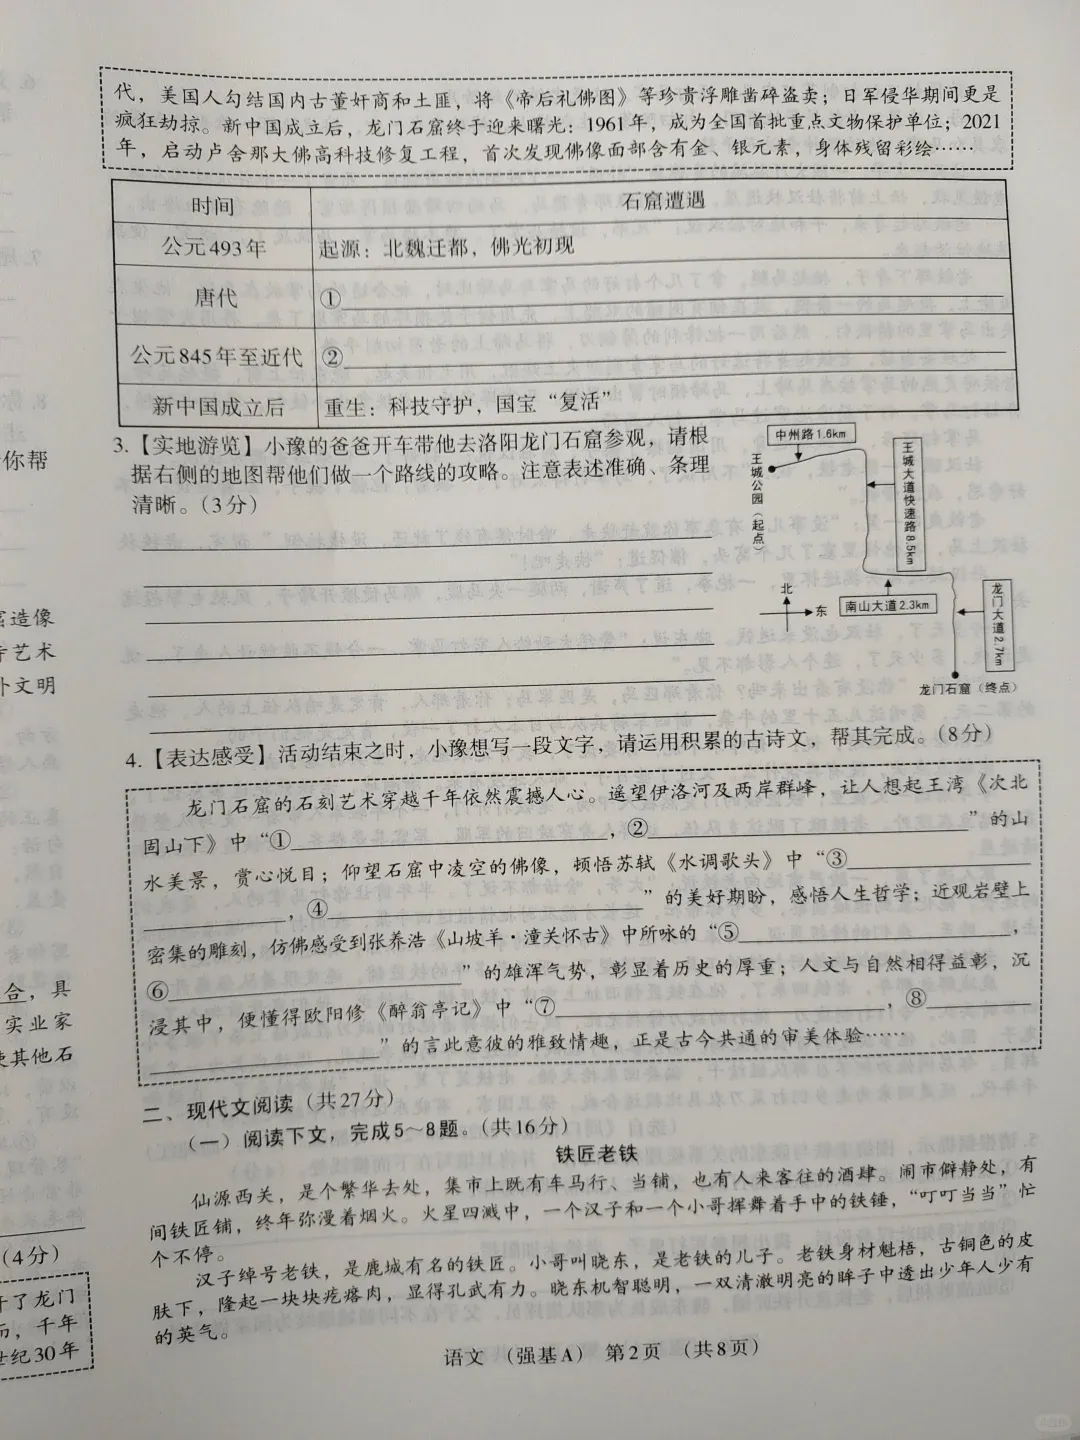 代，美国人勾结国内古董奸商和土匪，将《帝后礼佛图》等珍贵浮雕凿碎盗卖；日军侵华期间更是
疯狂劫掠。新中国成立后，龙门石窟终于迎来曙光：1961年，成为全国首批重点文物保护单位；2021
年，启动卢舍那大佛高科技修复工程，首次发现佛像面部含有金、银元素，身体残留彩绘……
时间 石窟遭遇
公元493年 起源：北魏迁都，佛光初现
唐代 ①
公元845年至近代 ②
新中国成立后 重生：科技守护，国宝“复活”
3.【实地游览】小豫的爸爸开车带他去洛阳龙门石窟参观，请根
据右侧的地图帮他们做一个路线的攻略。注意表述准确、条理
清晰。（3分）
中州路1.6km
王城公园（起点）
王城大道快速路8.5km
北
东
南山大道2.3km
龙门大道2.7km
龙门石窟（终点）
4.【表达感受】活动结束之时，小豫想写一段文字，请运用积累的古诗文，帮其完成。（8分）
龙门石窟的石刻艺术穿越千年依然震撼人心。遥望伊洛河及两岸群峰，让人想起王湾《次北
固山下》中“① ，② ”的山
水美景，赏心悦目；仰望石窟中凌空的佛像，顿悟苏轼《水调歌头》中“③
，④ ”的美好期盼，感悟人生哲学；近观岩壁上
密集的雕刻，仿佛感受到张养浩《山坡羊·潼关怀古》中所咏的“⑤ ，
⑥ ”的雄浑气势，彰显着历史的厚重；人文与自然相得益彰，沉
浸其中，便懂得欧阳修《醉翁亭记》中“⑦ ，⑧
”的言此意彼的雅致情趣，正是古今共通的审美体验……
二、现代文阅读（共27分）
（一）阅读下文，完成5～8题。（共16分）
铁匠老铁
仙源西关，是个繁华去处，集市上既有车马行、当铺，也有人来客往的酒肆。闹市僻静处，有
间铁匠铺，终年弥漫着烟火。火星四溅中，一个汉子和一个小哥挥舞着手中的铁锤，“叮叮当当”忙
个不停。
汉子绰号老铁，是鹿城有名的铁匠。小哥叫晓东，是老铁的儿子。老铁身材魁梧，古铜色的皮
肤下，隆起一块块疙瘩肉，显得孔武有力。晓东机智聪明，一双清澈明亮的眸子中透出少年人少有
的英气。
语文 （强基A） 第2页 （共8页）
你帮
窟造像
寺艺术
外文明
合，具
实业家
使其他石
（4分）
开了龙门
而，千年
世纪30年